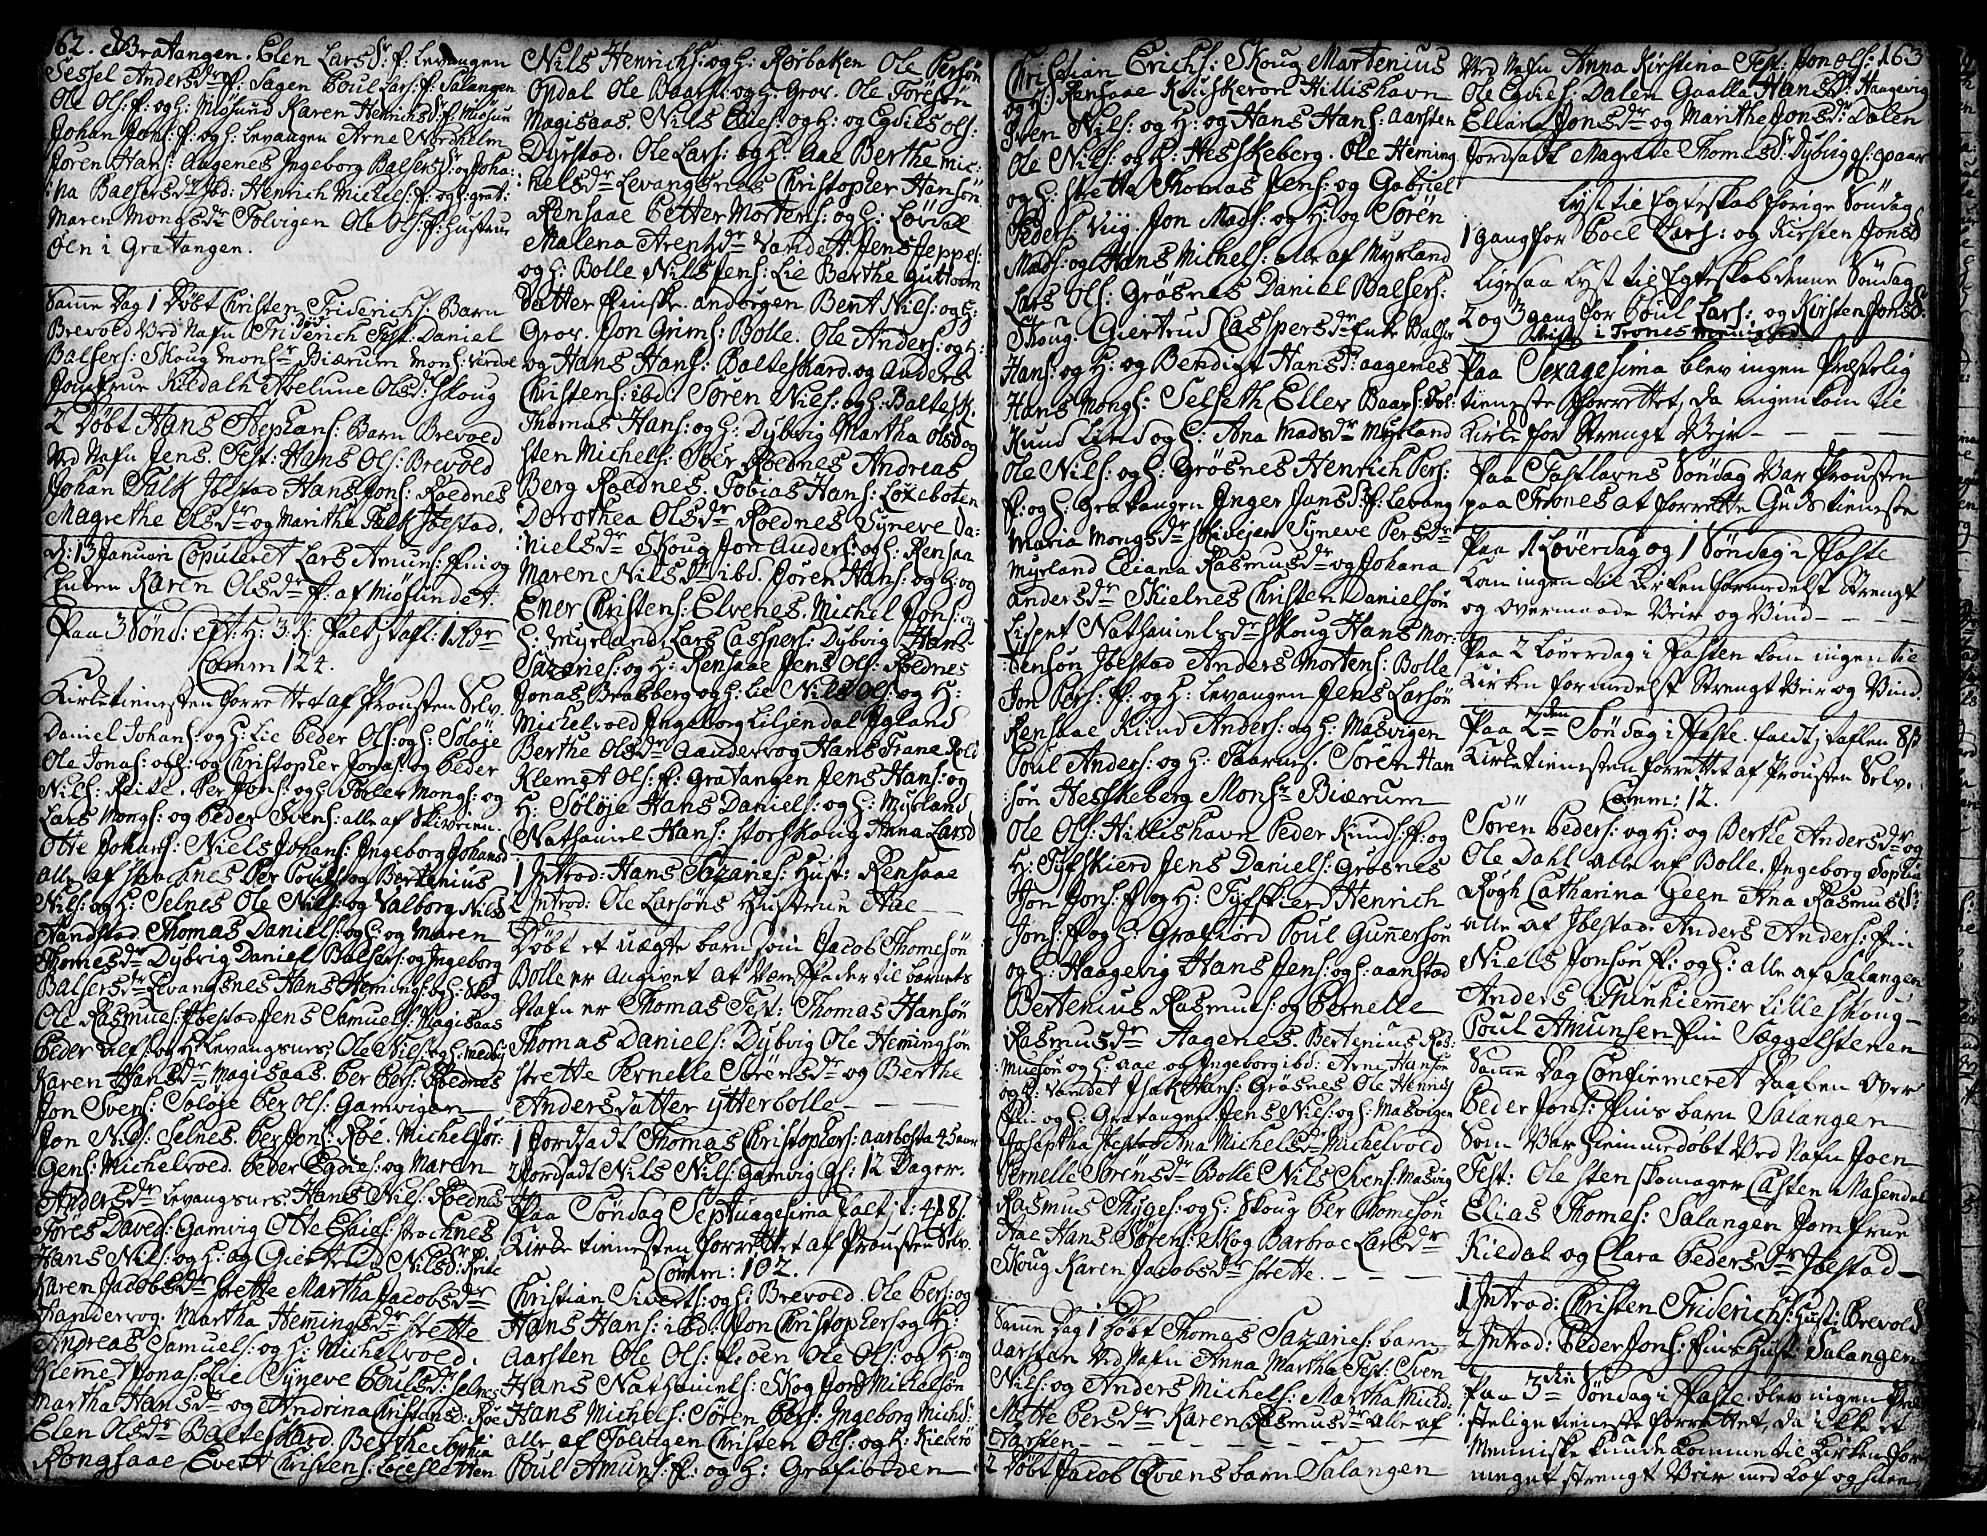 162. Gratangen. Elen Larsdr: f: Levangen
Sessel Andersdr f: Sagen Poul Lars: f: Salangen
Ole Ols: f: og h: Miøsund Karen Henrichsdr: f: Miøsun
Johan Jons: f: og h: Levangen Arne Nordhelm
Jøren Hans: Aagenes Ingeborg Balsersdr og Joha:
:na Balsersdr ibd: Henrich Michels: f: og h: grat:
Maren Mongsdr Tolvigen Ole Ols: f: Hustrue
Øen i Gratangen.
Samme Dag 1 Døbt Christen Friderichs: Barn
Brevold Ved Nafn Friderich Test: Daniel
Balsers: Skoug Monsr Biærum Mons:
Jomfrue Kildahl Avelune Olsdr: Skoug
2 Døbt Hans Stephans: Barn Brevold
Ved Nafn Jens. Test: Hans Ols: Brevold
Johan Falk Ibestad Hans Jons: Roednes
Magrethe Olsdr og Marithe Falk Ibestad.
d: 13 Januari Copuleret Lars Amuns: Fin og
Enken Karen Olsdr f: af Miøsundet.
Paa 3 Sønd: eft: H: 3 K: falt i tafl: 1 Rdr
Comm 124.
Kirketienesten forrettet af Prousten Selv.
Daniel Johans: og h: Lie Peder Ols: og h: Soløje
Ole Jonas: og Christopher Jonas: og Peder
Nils: Reite. Per Jons: og h: Peder Mongs: og
Lars Mongs: og Peder Svens: alle af Skivrien.
Otte Johans: Niels Johans: Ingeborg Johansd
alle af Stochnes Per Pouls: og Bertenius
Nils: og h: Selnes Ole Nils: og Valborg Nilsd
Sandstad Thomas Daniels: og h: og Maren
Thomesdr Dybvig Daniel Balsers: og Ingeborg
Balsersdr Levangsnes Hans Hemings: og h: Skog
Ole Rasmus: Ibestad Jens Samuels: Magisaas
Peder Alfs: og h: Levangsnes, Ole Nils: og h: Medby
Karen Hansdr Magisaas. Per Pers: Roednes
Jon Svens: Soløje Per Ols: Gamvigen
Jon Nils: Selnes. Per Jons: Røe. Michel Jør:
:gens: Michelvold. Peder Egdies: og Maren
Andersdr Levangsnes Hans Nils: Roednes
Tores Davids: Gamvig Otte Elies: Stochnes
Hans Nils: og h: og Giertrud Nilsdr: Reite
Karen Jacobsdr Strette Martha Jacobsdr
Handervog. Martha Hemmingsdr Strette
Andreas Samuels: og h: Michelvold.
Klemet Jonas: Lie Syneve Poulsdr: Selnes
Martha Hansdr og Andrina Christens: Røe
Elen Olsdr Balteskard. Berthe Sophia
Rongsaae Evert Christens: Løxesletten
Nils Henrichs: og h: Rørbaken Ole Persøn
Opdal Ole Baars: og h: Grov. Ole Toresøn
Magisaas. Nils Elies: og h: og Egdies Ols:
Dyrstad. Ole Lars: og h: Aae Berthe Mic:
:helsdr Levangsnes Christopher Hansøn
Rensaae Petter Mortens: og h: Løvdal
Malena Arentzdr Vamdett. Jens Jeppes:
og h: Bolle Nils Jens: Lie Berthe Guttorm
datter Finske andørgen Bent Niels: og h:
Grov. Jon Grims: Bolle. Ole Anders: og h:
og Hans Hans: Balteskard. og Anders
Christens: ibd. Søren Nils: og h: Baltesk.
Thomas Hans: og h: Dybvig Martha Olsd og
Sten Michels: Roednes Andreas
Berg Roednes. Tobias Hans: Løxeboten
Dorothea Olsdr Roednes Syneve Da:
:nielsdr Skoug Jon Anders: og h: Rensaa
Maren Nilsdr ibd. Jøren Hans: og h: og
Ener Christens: Elvenes. Michel Jons: og
h: Myrland. Lars Caspers: Dybvig Hans
Sazaries: og h: Rensaae Jens Ols: Roednes
Jonas Brasberg og h: Lie Nils Ols: og h:
Michelvold Ingeborg Liljendal Igland
Berthe Olsdr Aandervog Hans Trane Rold
Klemet Ols: f: Gratangen Jens Hans: og
H. Soløje Hans Daniels: og h: Myrland
Nathaniel Hans: Storskoug Anna Larsd
1 Introd: Hans Sazaries: Hust: Rensaae
2 Introd: Ole Larsøns Hustrue Aae
Døbt et uægte barn som Jacob Thomesøn
Bolle er Angivet at Være Fader til barnets
Nafn er Thomas Test: Thomas Hansøn
Thomas Daniels: Dybvig Ole Hemingsøn
Strette Pernelle Sørensdr og Berthe
Andersdatter ytterbolle - - -
1 Jordfæstet Thomas Christophers: aarbosta 45 aar
2 Jordfæstet Nils Nils: Gamvig gl: 12 Dager.
Paa Søndag Septuagesima falt i t: 4 18ß.
Kirketienesten forrettet af Prousten Selv.
Comm: 102.
Christian Siverts: og h: Brevold. Ole Pers: og
Hans Hans: ibd: Jon Christophers: og h:
Aarsten Ole Ols: f: Øen Ole Ols: og h: og
Hans Nathaniels: Skog Jons Michelsøn
Hans Michels: Søren Pers: Ingeborg Michd:
alle af Tolvigen Christen Ols: og h: Kieberø
Poul Amuns: f: og h: Grafiorden
Christian Erichs: Skoug Martenius
og h: Rensaae Hillishavn
Sven Nils: og H: og Hans Hans: Aarsten
Ole Nils: og h: Hesskeberg. Ole Heming
og h: Strette Thomas Jens: og Gabriel
Peders: Viig. Jon Mads: og H: og Søren
Mads: og Hans Michels: alle af Myrland
Lars Ols: Grøsnes Daniel Balsers:
Skoug. Giertrud Caspersdr Enke Balser
Hans: og h: og Bendigt Hansdr: aagenes
Hans Mongs: Selseth Eller Baars: Tol:
Knud Lind og h: Ana Madsdr Myrland
Ole Nils: og h: Grøsnes Henrich Pers:
f: og h: Gratangen Inger Jansdr: f: Levang
Maria Mongsdr Skivejen Syneve Persdr
Myrland Eliana Rasmusdr og Johana
Andersdr Skielnes Christen Danielsøn
Lisbet Nathanielsdr Skoug Hans Mor:
:tensøn Ibestad Anders Mortens: Bolle
Jon Pers: f: og h: Levangen Jens Larsøn
Rensaae Knud Anders: og h: Masvigen
Poul Anders: og h: Faarm: Søren Han
:søn Hesskeberg Monsr Biærum
Ole Ols: Hillishavn Peder Knuds: f: og
H: Tyfskierd Jens Daniels: Grøsnes
Jon Jons: f: og H: Tyfskierd Henrich
Jons: f: og h: Grafiord Poul Gunnersøn
og h: Haagevig Hans Jens: og h: aanstad
Bertenius Rasmus: og Pernelle
Rasmusdr Aagenes. Bertenius Ras:
:musøn og h: Aae og Ingeborg ibd: Arne Hansøn
og h: Vamdet Isak Hans: Grøsnes Ole Hennes
Fin og h: Gratangen Jens Nils: og h: Masvigen
Josaphta Ibestad Ana Michelsdr Michelvold
Pernelle Sørensdr Bolle Nils Svens: Masvig
Rasmus Thyges: og h: Skoug Per Thomesøn
Aae Hans Sørens: Skog Barbroe Larsdr
Skoug Karen Jacobsdr Strette. - - -
Samme Dag 1 Døbt Thomas Sazaries: barn
Aarsten Ved Nafn Anna Martha Test: Sven
Nils: og Anders Michels: Martha Michd:
Mette Persdr Karen Rasmusdr alle af
Aarsten - - -
2 Døbt Jacob Qvæns barn Salangen
163
Ved Nafn Anna Kirstina Test: Jon Ols:
Ole Egdies: Dalen Gualla Hansdr: Haagevig
Eliana Jonsdr og Marithe Jonsdr Dalen
Jordfæst Magrete Thomesd: Dybvig gl: 2 aar
Lyst til Egteskab forige Søndag
1 gang for Poel Lars: og Kirsten Jonsd
Ligesaa Lyst til Egteskab denne Søndag
2 og 3 gang for Poul Lars: og Kirsten Jonsd:
i Trones Menighed
Paa Sexagesima blev ingen Præstelig
tieneste forrettet, da ingen kom til
Kirke for Strengt Veir - - -
Paa Fastlavns Søndag Var Prousten
paa Trones at forrette Guds tieneste
Paa 1 Løverdag og 1 Søndag i Faste
Kom ingen til Kirken formedelst Strengt
og Overmaade Veir og Vind - - -
Paa 2 Løverdag i Fasten kom ingen til
Kirken formedelst Strengt Veir og Vind
Paa 2den Søndag i Faste. faldt i taflen 8ß
Kirketienesten forrettet af Prousten Selv.
Comm: 12.
Søren Peders: og H: og Berthe Andersdr og
Ole Dahl alle af Bolle. Ingeborg Sophia
Røgh Catharina Geen Ana Rasmusdr:
alle af Ibestad. Anders Anders: Fin
Niels Jonsøn f: og h: alle af Salangen
Anders Trunhiemmer Lilleskoug
Poul Amunsen Fin Sæggelstenen
Samme Dag Confirmeret Daaben Over
Peder Jons: Fins barn Salangen
Som Var Hiemmedøbt Ved Nafn Joen
Test: Ole Sten Skomager Casten Masendal
Elias Thomes: Salangen Jomfrue
Kildal og Clara Pedersdr Ibestad -
1 Introd: Christen Friderichs: Hust: Brevold
2 Introd: Peder Jons: Fins Hust: Salangen
Paa 3die Søndag i Faste blev ingen Præ
stelige tieneste forrettet, da ikke et
Menniske kunde komme til Kirken for
meget strengt Veir med Kof og Snee